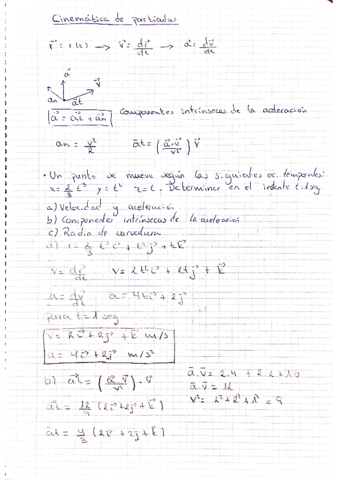 Cinemática de partículas
r⃗ = r(t) → v⃗ = dr⃗/dt → a⃗ = dv⃗/dt
a⃗
v⃗
an at⃗
a⃗ = at⃗ + an⃗ Componentes intrínsecas de la aceleración
an = v²/R at⃗ = (a⃗·v⃗/v²) v⃗
• Un punto se mueve según las siguientes ec. temporales:
x = 2/3 t³ y = t² z = t. Determinar en el instante t=1 seg
a) Velocidad y aceleración
b) Componentes intrínsecas de la aceleración
c) Radio de curvatura
a) r = 2/3 t³ i⃗ + t² j⃗ + t k⃗
v = dr⃗/dt v = 2t² i⃗ + 2t j⃗ + k⃗
a = dv⃗/dt a = 4t i⃗ + 2 j⃗
para t=1 seg
v = 2i⃗ + 2j⃗ + k⃗ m/s
a = 4i⃗ + 2j⃗ m/s²
b) at⃗ = (a⃗·v⃗/v²) · v⃗ a⃗·v⃗ = 2·4 + 2·2 + 1·0
a⃗·v⃗ = 12
at⃗ = 12/9 (2i⃗ + 2j⃗ + k⃗) v² = 2² + 2² + 1² = 9
at⃗ = 4/3 (2i⃗ + 2j⃗ + k⃗)